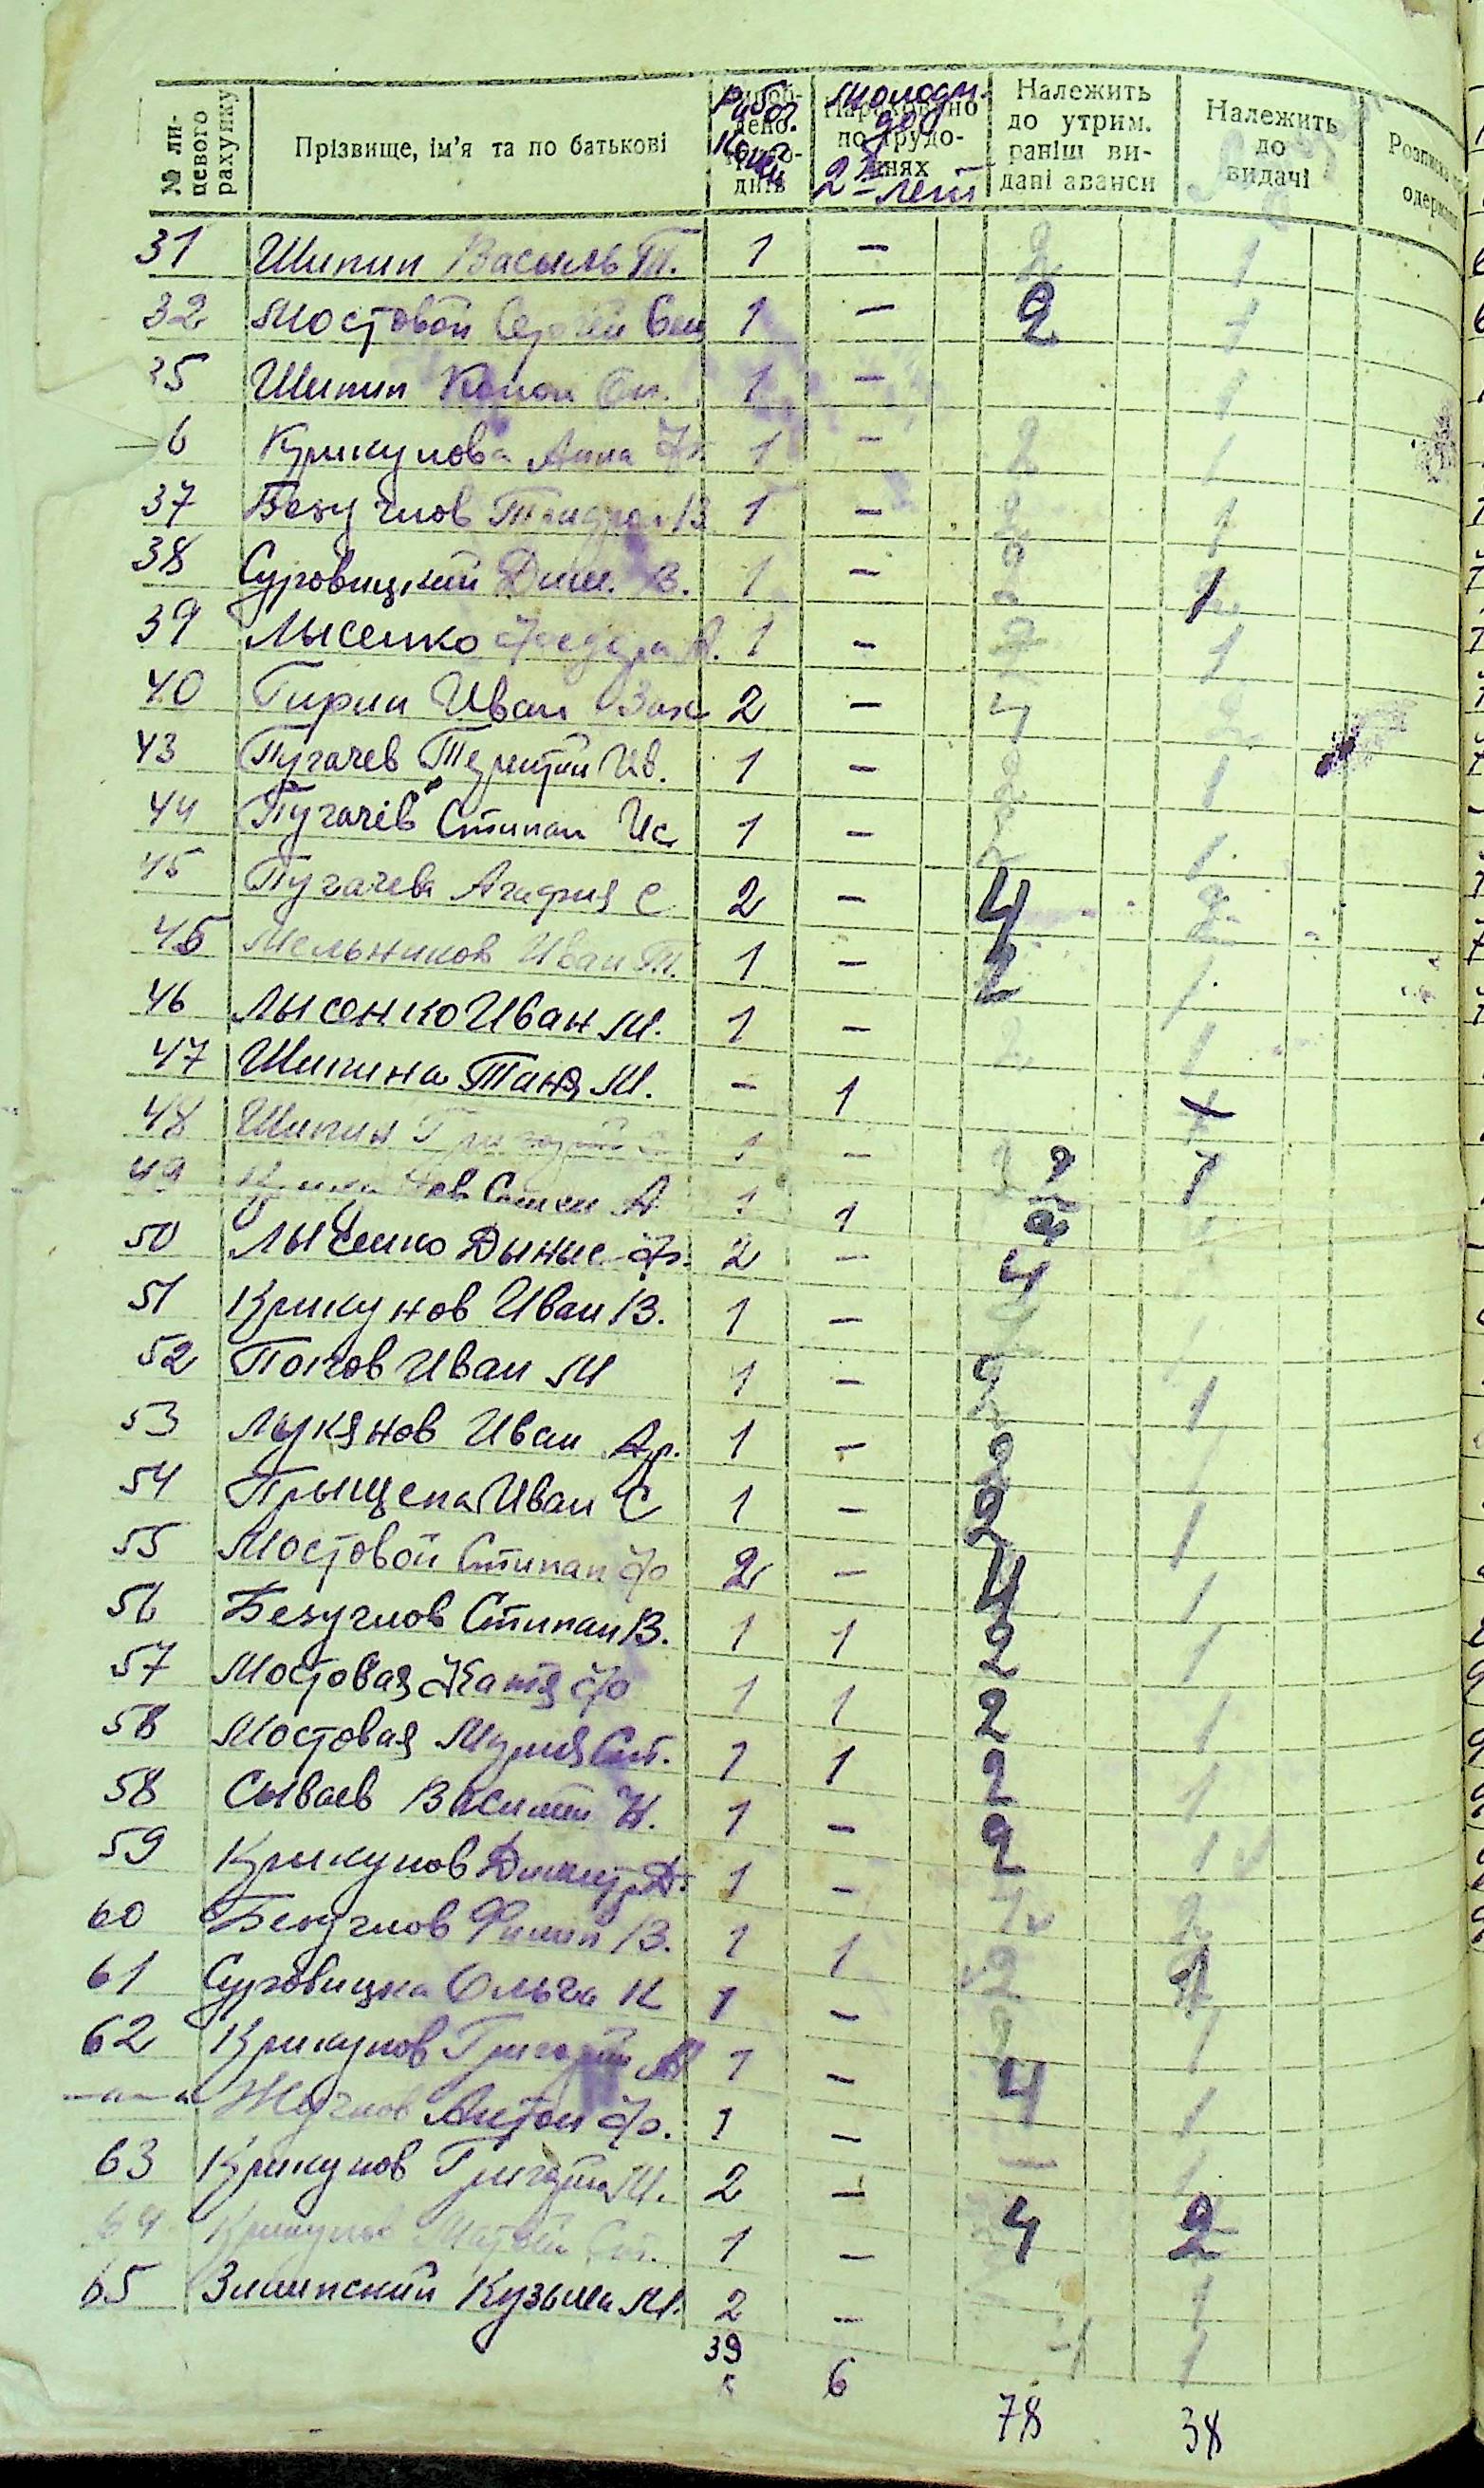 № ли-
цевого
рахунку
Прізвище, ім'я та по батькові
Рабоч.
Молодн.
до
2 лет
Належить
до утрим.
раніш ви-
дані аванси
Належить
до
видачі
Розписка
31 Шипин Василь Т. 1 — 2 1
32 Мостовой Сергей Сем 1 — 2 1
35 Шипин Конон 1 — 1
6 Крикунова Анна Ф. 1 — 2 1
37 Безуглов В 1 — 2 1
38 Суровицкий Дми. В. 1 — 2 1
39 Лысенко Федора А. 1 — 2 1
40 Гирин Иван Зах 2 — 4 2
43 Пугачев Терентий Ив. 1 — 2 1
44 Пугачёв Стипан Ис 1 — 2 1
45 Пугачева Агафия С 2 — 4 2
45 Мельников Иван Т. 1 — 2 1
46 Лысенко Иван М. 1 — 2 1
47 Шипина Таня М. — 1 1
48 Шипин Григорий 1 — 2 1
49 Семен А 1 1 2 1
50 Лысенко Дынис Ф. 2 — 4
51 Крикунов Иван В. 1 — 2 1
52 Попов Иван М 1 — 2 1
53 Лукянов Иван Ар. 1 — 2 1
54 Прыщепа Иван С 1 — 2 1
55 Мостовой Стипан Ф 2 — 4 1
56 Безуглов Стипан В. 1 1 2 1
57 Мостовая Катя Ф 1 1 2 1
58 Мостовая Мария Ст. 1 1 2 1
58 Сываев Василий И. 1 — 2 1
59 Крикунов Дмитр Д. 1 — 4 2
60 Безуглов Филип В. 1 1 2 1
61 Суровицка Ольга К 1 — 2 1
62 Крикунов Григорий М 1 — 4 1
—"—" Жуглов Антон Ф. 1 — — 1
63 Крикунов Григорий М. 2 — 4 2
64 Крикунов Ст. 1 — 1
65 Зиминский Кузьма М. 2 — 1
39 6 78 38